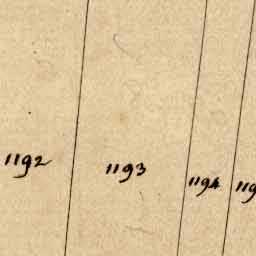 1192
1193
1194
119